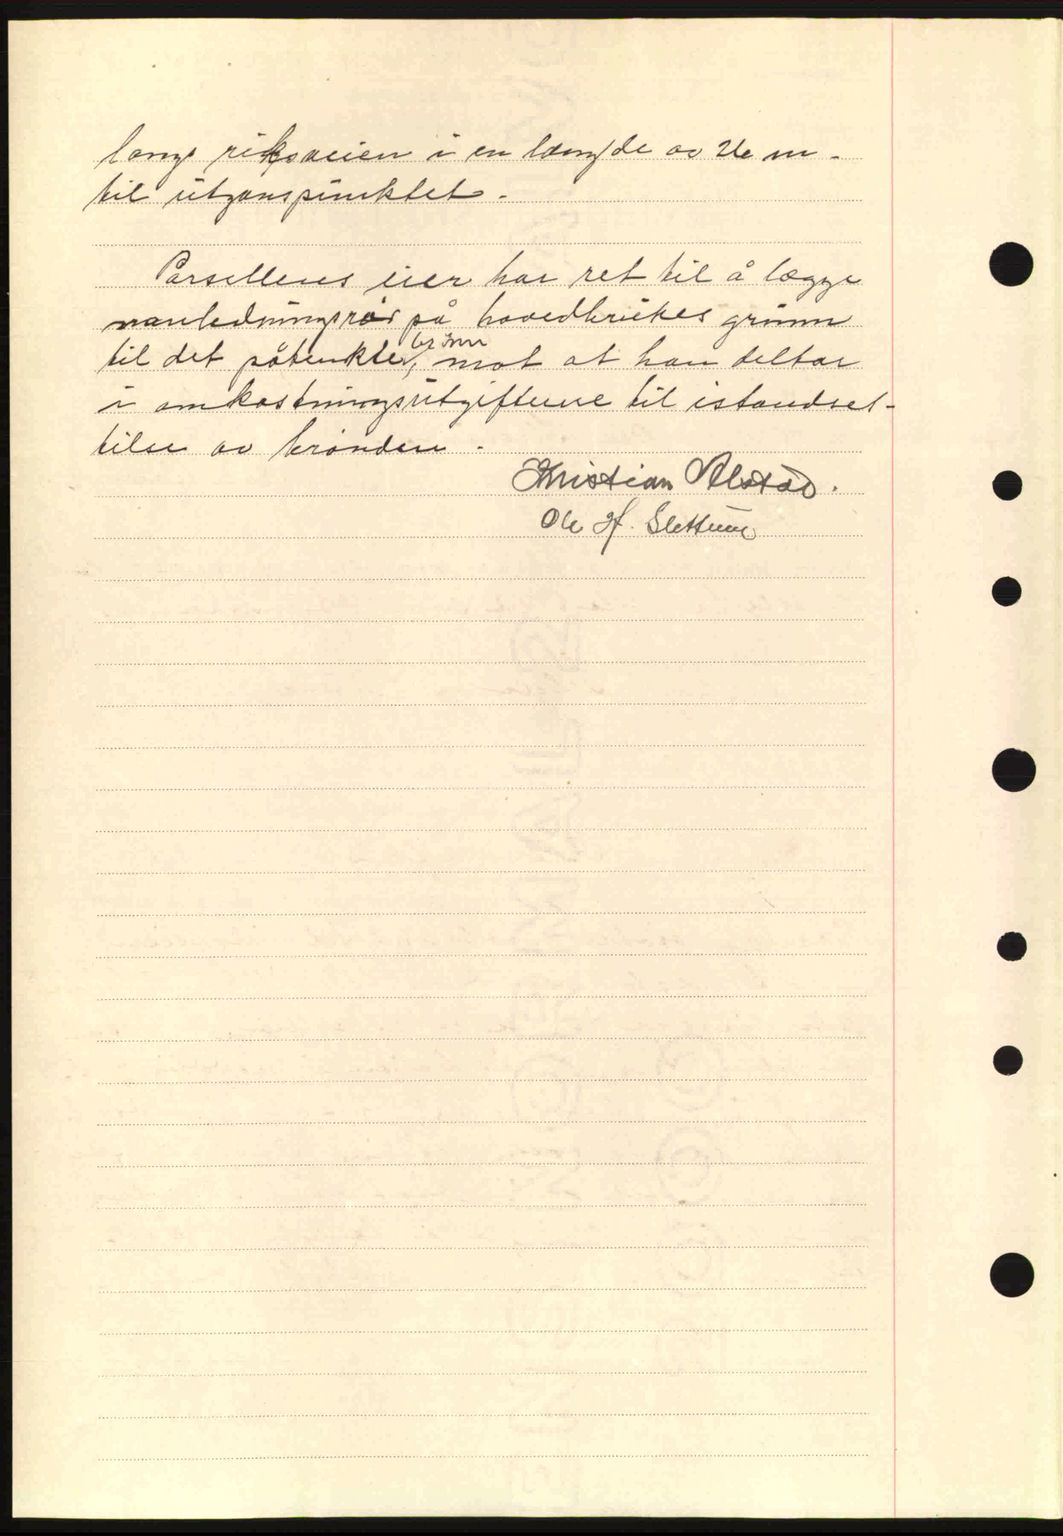 langs riksveien i en længde av 26 m -
til utganspunktet -
Parsellenes eier har ret til å lægge
vanledningsrør på hovedbrukes grunn
til det påtenkte brønn, mot at han deltar
i omkostningsutgifterne til istandset-
telse av brønden -
Kristian Alstad.
Ole H. Slettum